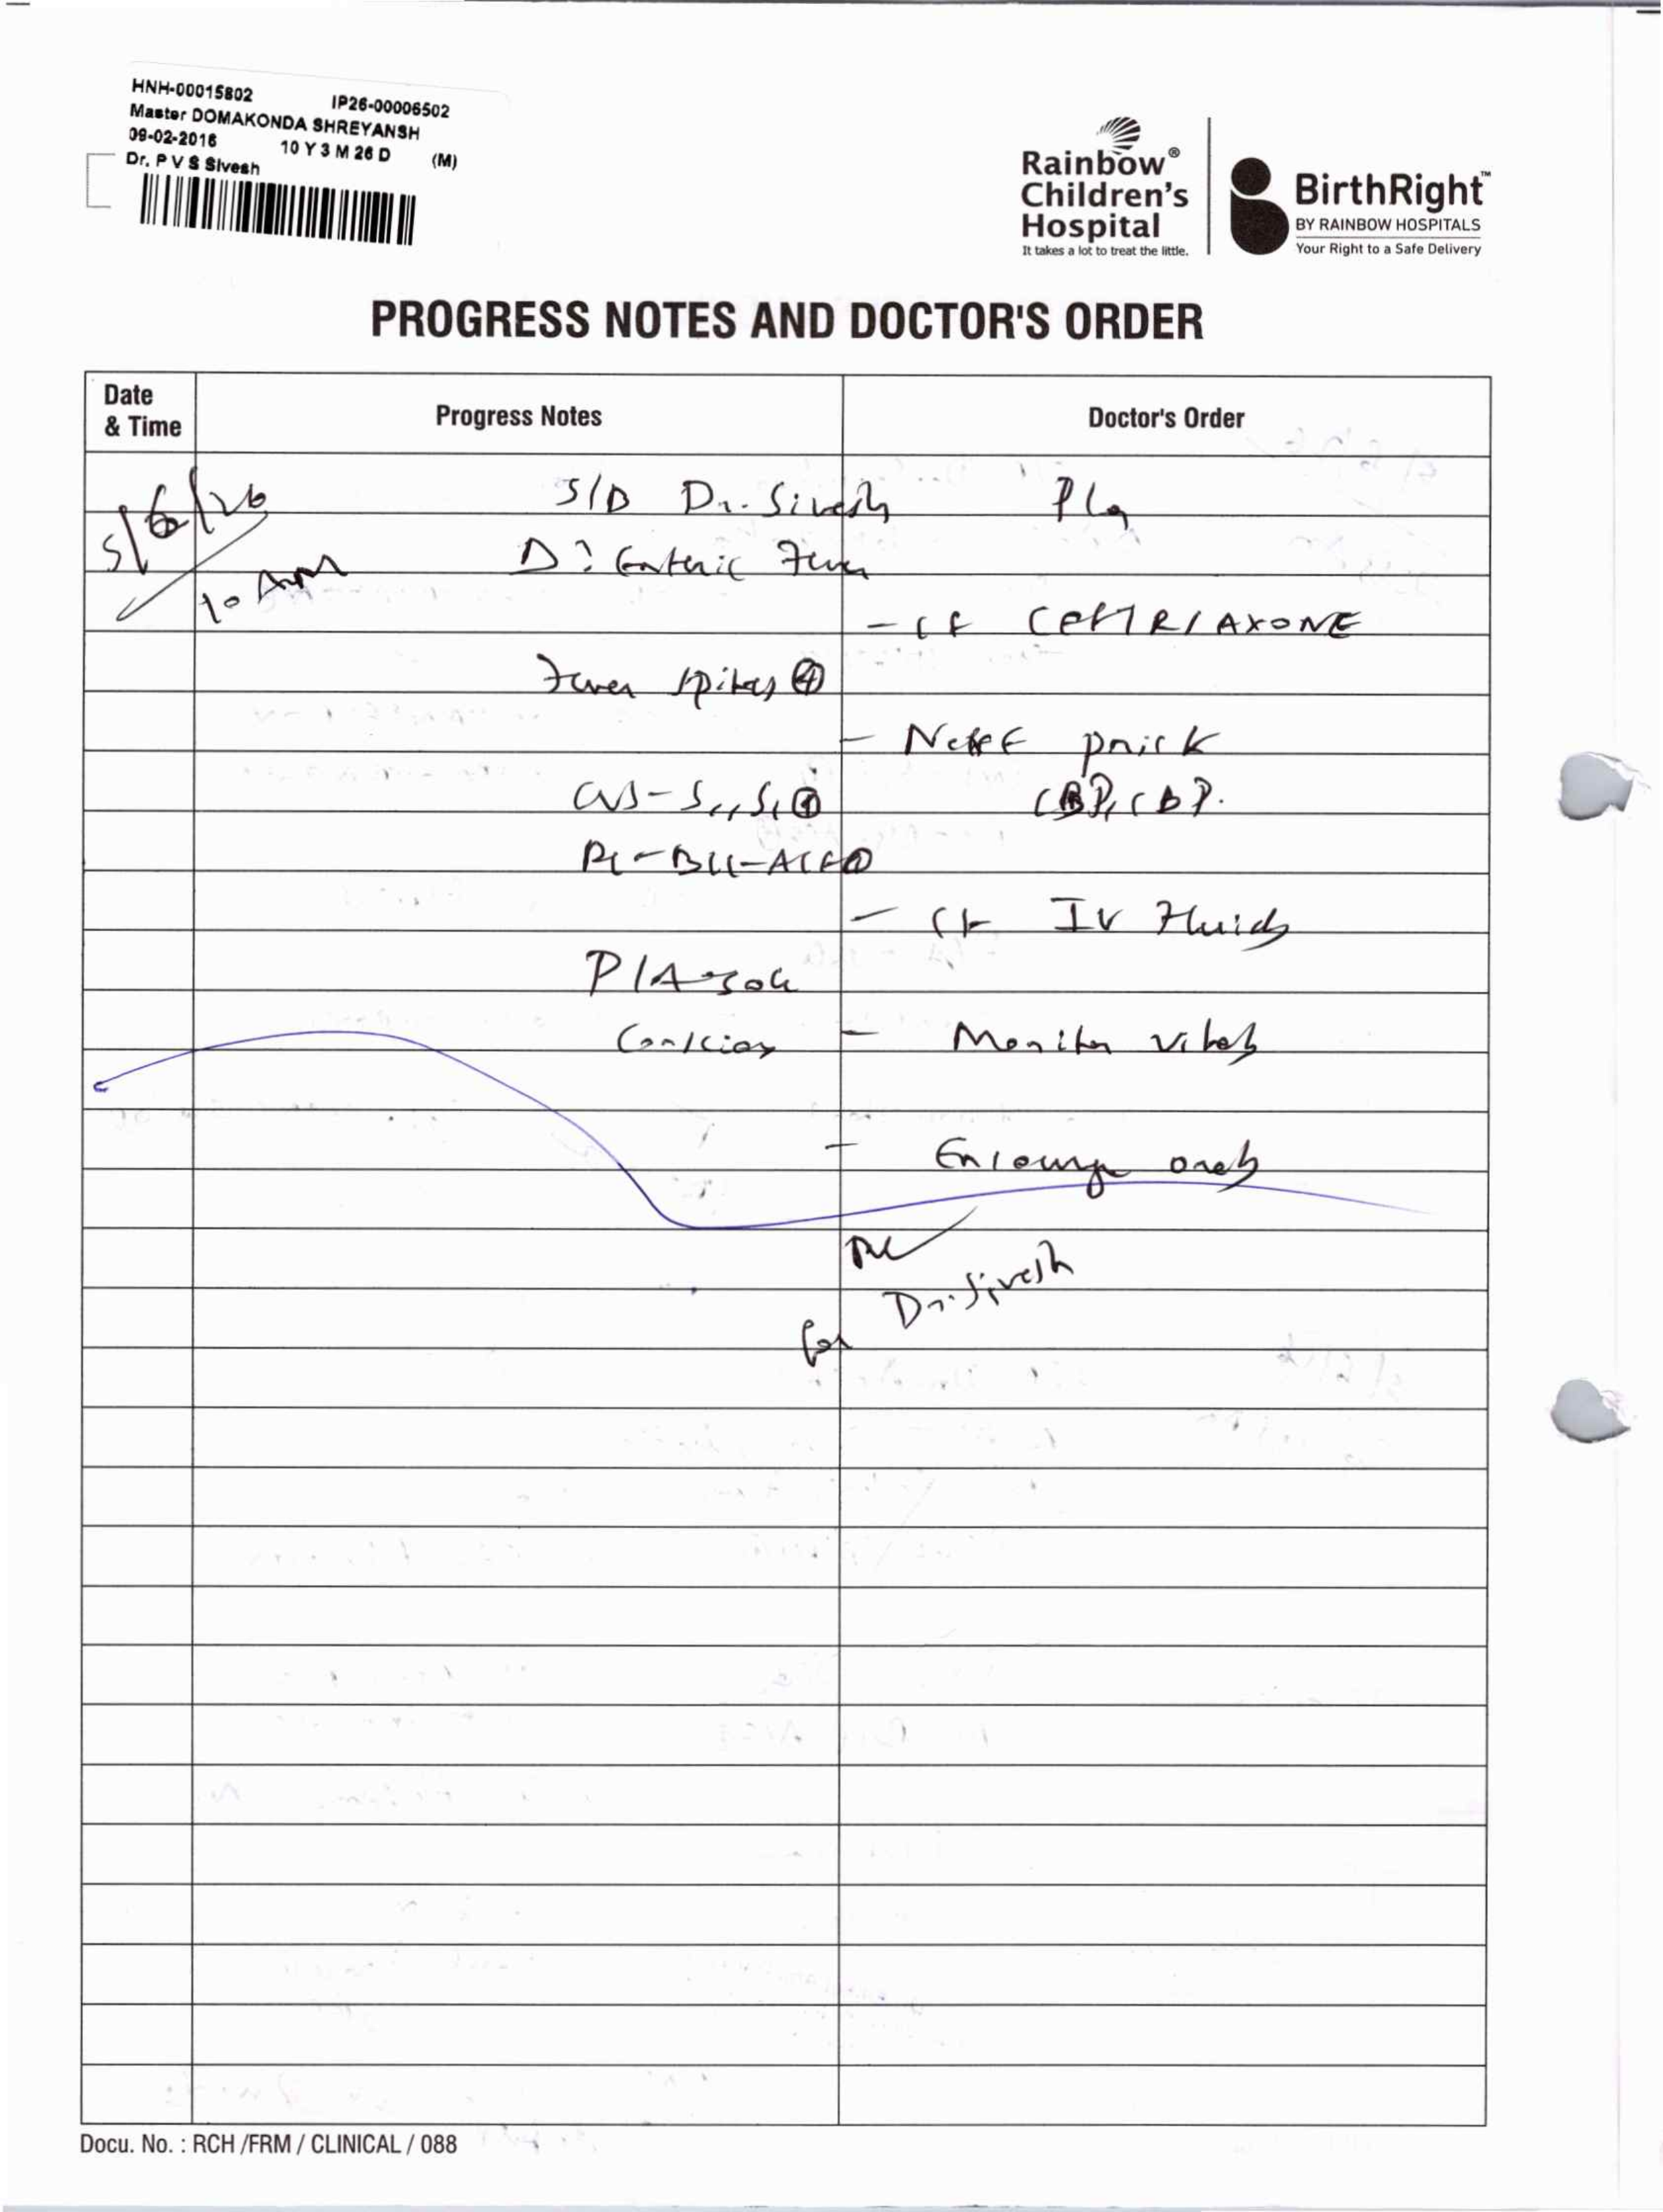 HNH-00015802 IP26-00006502
Master DOMAKONDA SHREYANSH
09-02-2016 10 Y 3 M 26 D (M)
Dr. P V S Sivesh
Rainbow®
Children's
Hospital
It takes a lot to treat the little.
BirthRight™
BY RAINBOW HOSPITALS
Your Right to a Safe Delivery
PROGRESS NOTES AND DOCTOR'S ORDER
Date
& Time
Progress Notes
Doctor's Order
5/6/26
10 Am
S/B Dr. Sivesh
D: Enteric Fever
Fever spikes
CVS - S₁, S₂
P/A - soft
Conscious
Plan
- CEFTRIAXONE
- prick
CBP,
- IV Fluids
- Monitor vitals
- Encourage orals
for Dr. Sivesh
Docu. No. : RCH /FRM / CLINICAL / 088